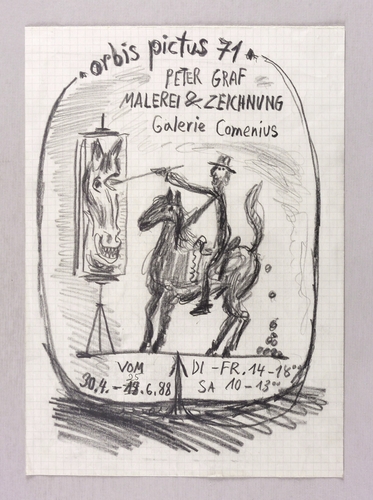 orbis pictus 71
PETER GRAF
MALEREI & ZEICHNUNG
Galerie Comenius
VOM
30.4. - .6.88
DI - FR. 14 - 18⁰⁰
SA 10 - 13⁰⁰